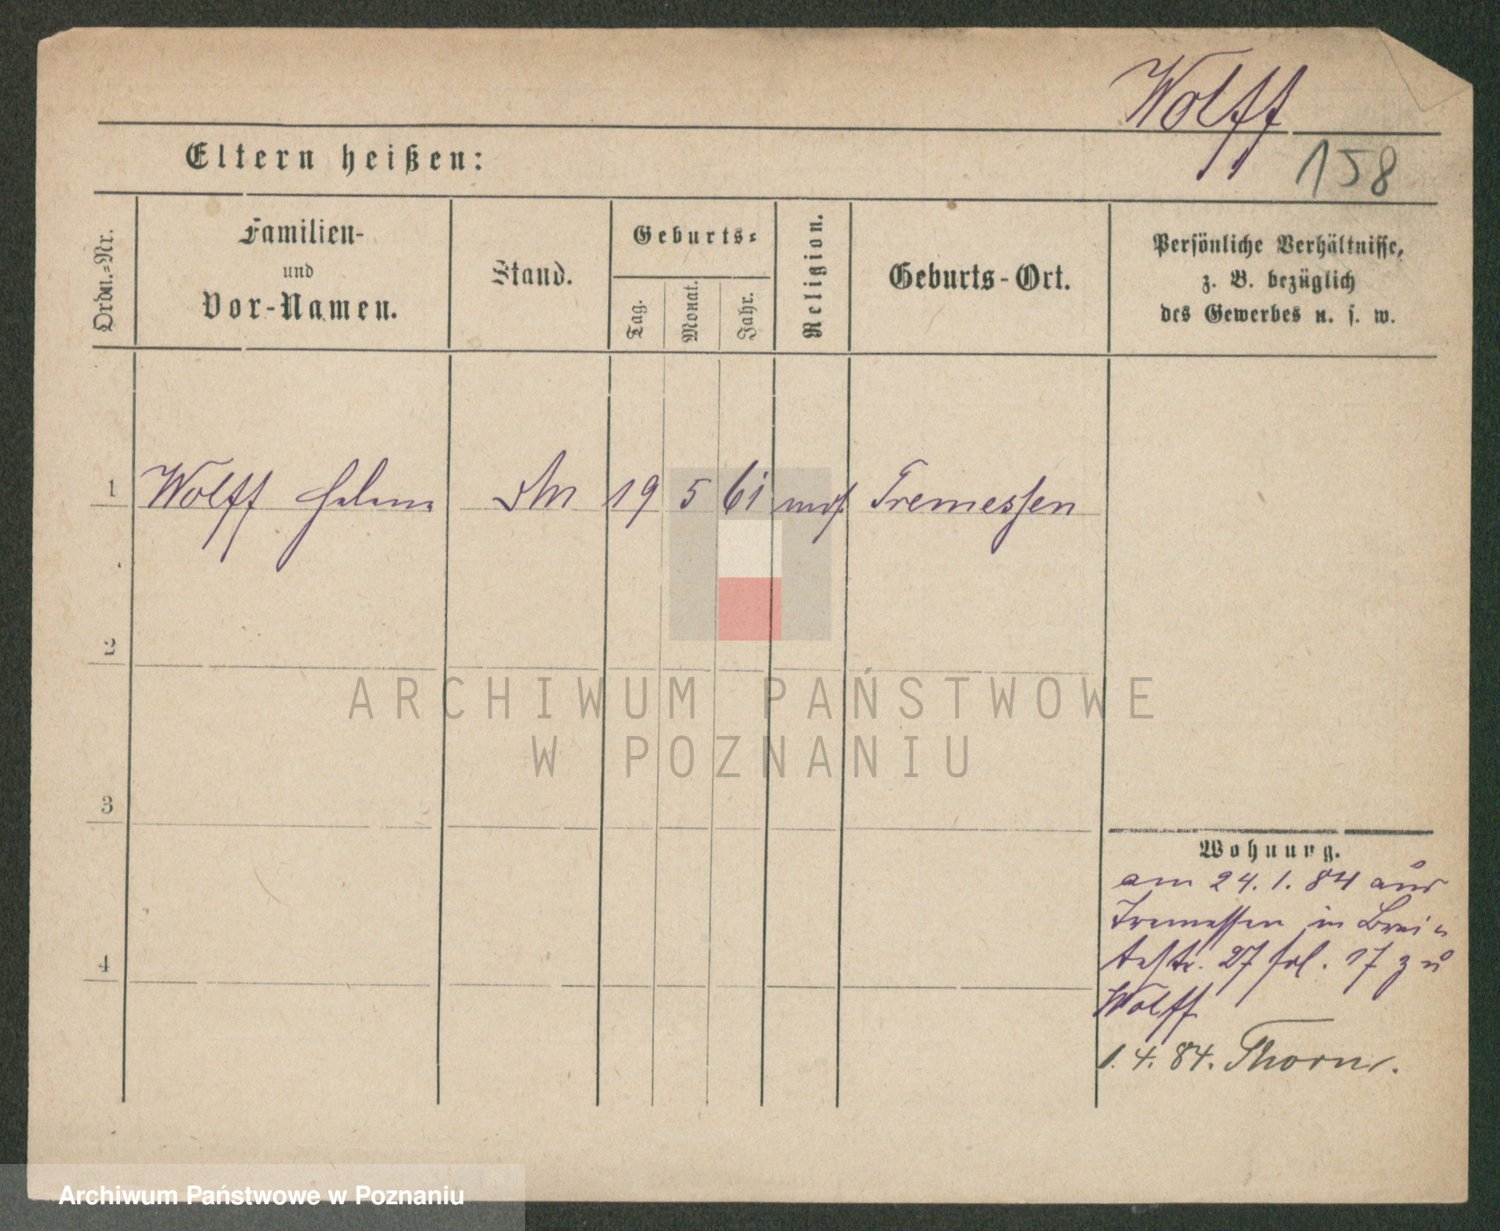 Wolff
158
Eltern heißen:
Ordn.-Nr.
Familien-
und
Vor-Namen.
Stand.
Geburts-
Tag.
Monat.
Jahr.
Religion.
Geburts-Ort.
Persönliche Verhältnisse,
z. B. bezüglich
des Gewerbes u. s. w.
1 Wolff Helene 19 5 61 mos. Tremessen
2
3
4
Wohnung.
am 24. 1. 84 aus
Tremessen in Brei-
testr. 27 fol. 17 zu
Wolff
1. 4. 84. Thorn.
ARCHIWUM PAŃSTWOWE
W POZNANIU
Archiwum Państwowe w Poznaniu